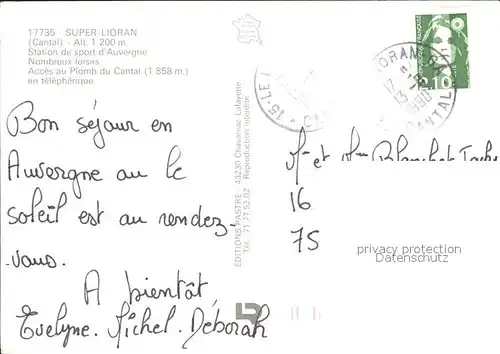 17735 SUPER-LIORAN
(Cantal) - Alt. 1 200 m.
Station de sport d'Auvergne
Nombreux loisirs
Accès au Plomb du Cantal (1 858 m.)
en téléphérique.
Bon séjour en
Auvergne au le
soleil est au rendez
-vous.
A bientôt
Evelyne. Michel. Déborah
EDITIONS PASTRE 43230 Chavaniac-Lafayette
Tél. 71 77.52.02 Reproduction interdite
15-LE
2,10
CANTAL
M et Mme Blanchet
16
75
privacy protection
Datenschutz